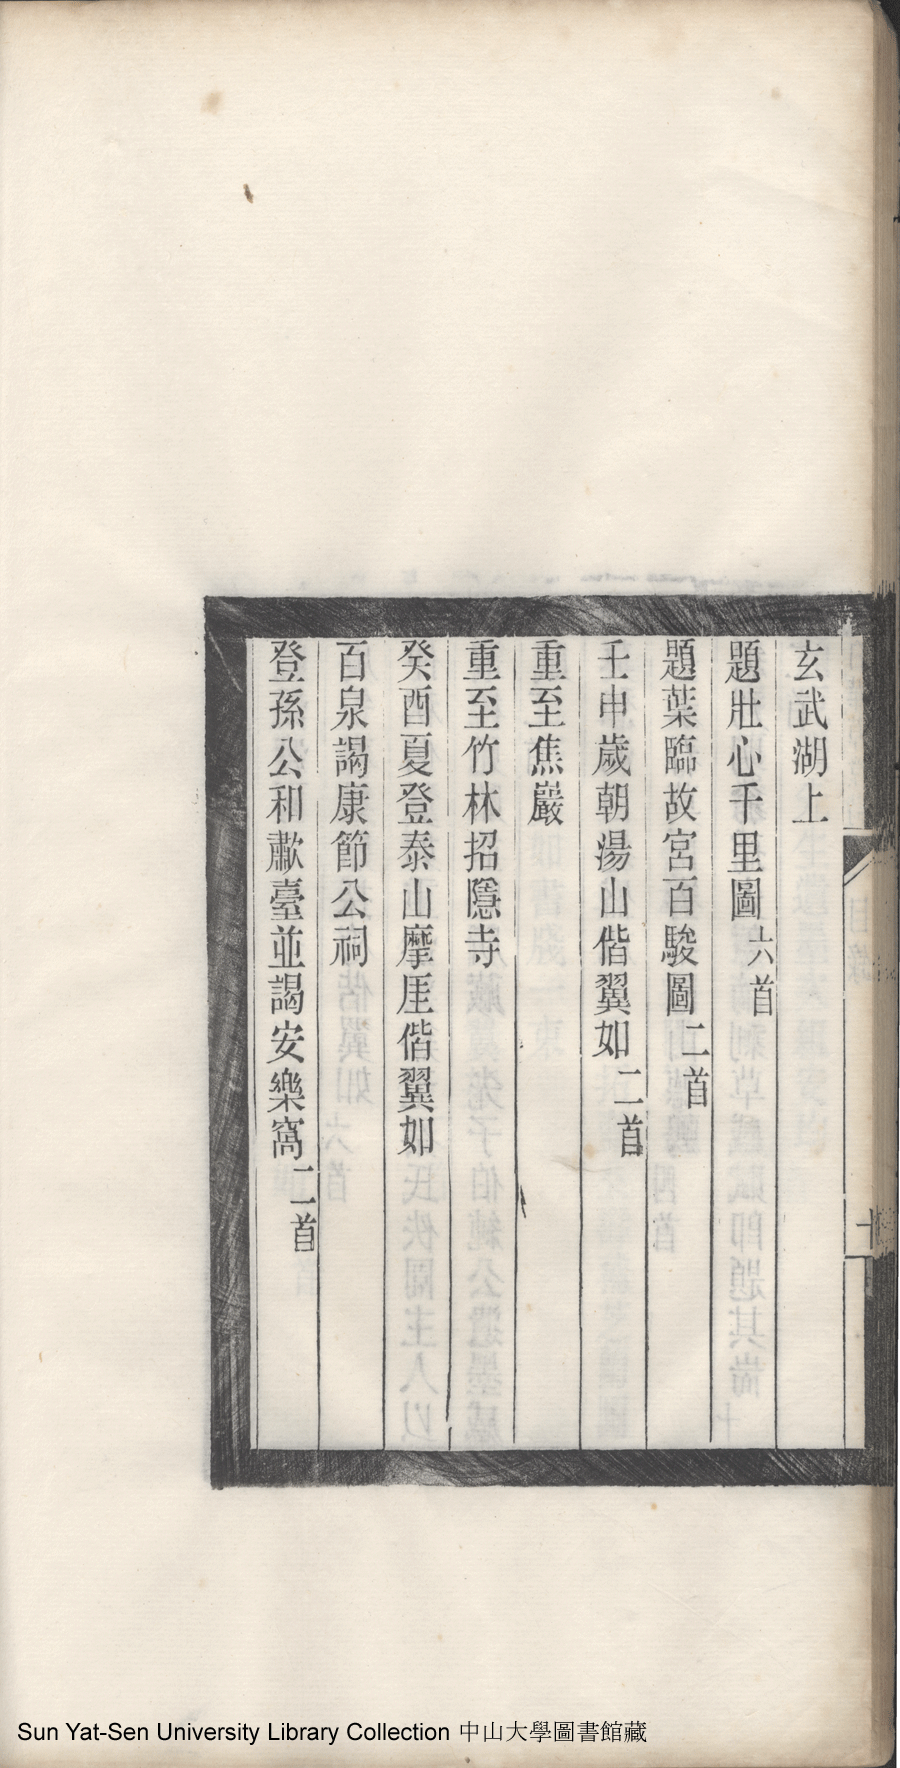 玄武湖上
題壯心千里圖六首
題葉臨故宮百駿圖二首
壬申歲朝湯山偕翼如二首
重至焦巖
重至竹林招隱寺
癸酉夏登泰山摩厓偕翼如
百泉謁康節公祠
登孫公和歗臺並謁安樂窩二首
目錄
十
Sun Yat-Sen University Library Collection 中山大學圖書館藏